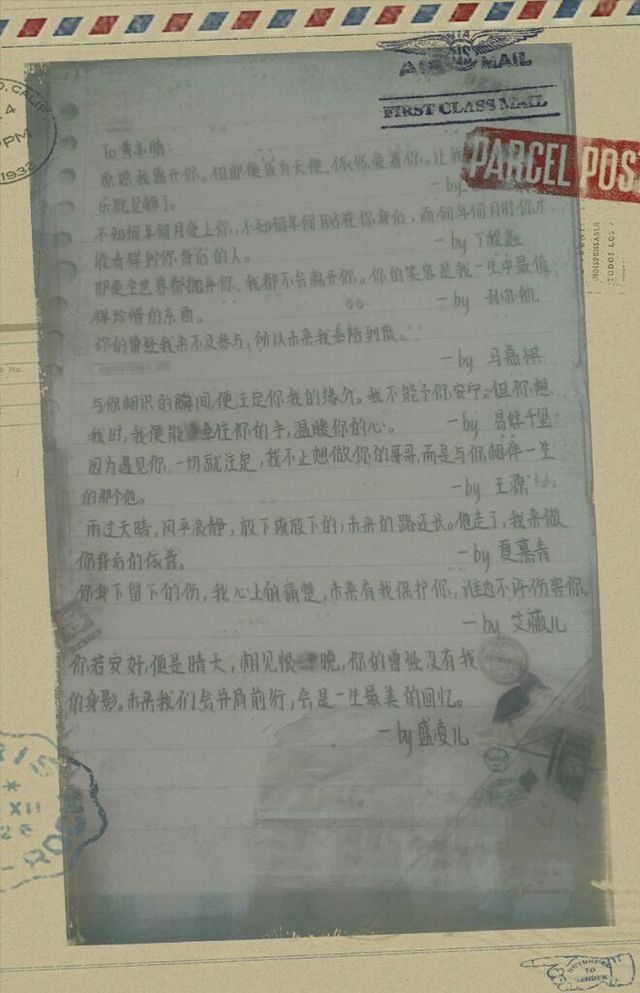 AIR MAIL
FIRST CLASS MAIL
PARCEL POS
CALIF
4
PM
1932
INDISPENSABLE
TODOS LOS
To 黄
原谅我离开你。但即便成为天使,依然爱着你。让我
乐就足够了。
- by
不知何年何月爱上你,不知何年何月站在你身后,而何年何月时你才
能看得到你背后的人。
- by 丁程鑫
即使全世界都抛弃你,我都不会离开你。你的笑容是我一生中最值
得珍惜的东西。
- by
你的曾经我来不及参与,所以未来我奉陪到底。
- by 马嘉祺
与你相识的瞬间,便注定你我的缘分。我不能予你安宁,但你想
我时,我便能牵住你的手,温暖你的心。
- by 易烊千玺
因为遇见你,一切就注定,我不止想做你的哥哥,而是与你相伴一生
的那个他。
- by 王源
雨过天晴,风平浪静,放下该放下的,未来的路还长。他走了,我来做
你背后的依靠。
- by 夏慕青
你身下留下的伤,我心上的痛楚,未来有我保护你,谁也不许伤害你。
- by 艾薇儿
你若安好,便是晴天,相见恨晚,你的曾经没有我
的身影。未来我们会并肩前行,会是一生最美的回忆。
- by 盛凌儿
XII
RETURNED
TO
SENDER